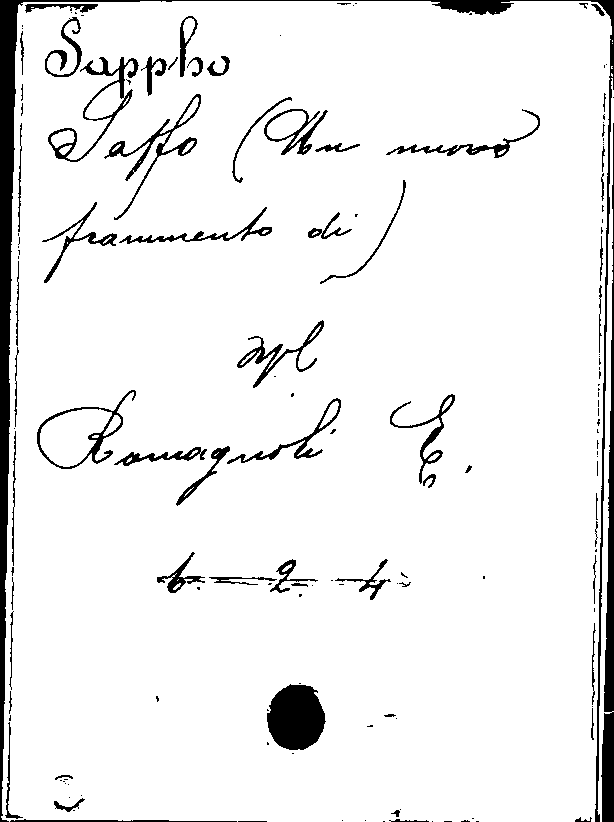 Sappho
Saffo (Un nuovo
frammento di)
Romagnoli E.
6. 2. 4